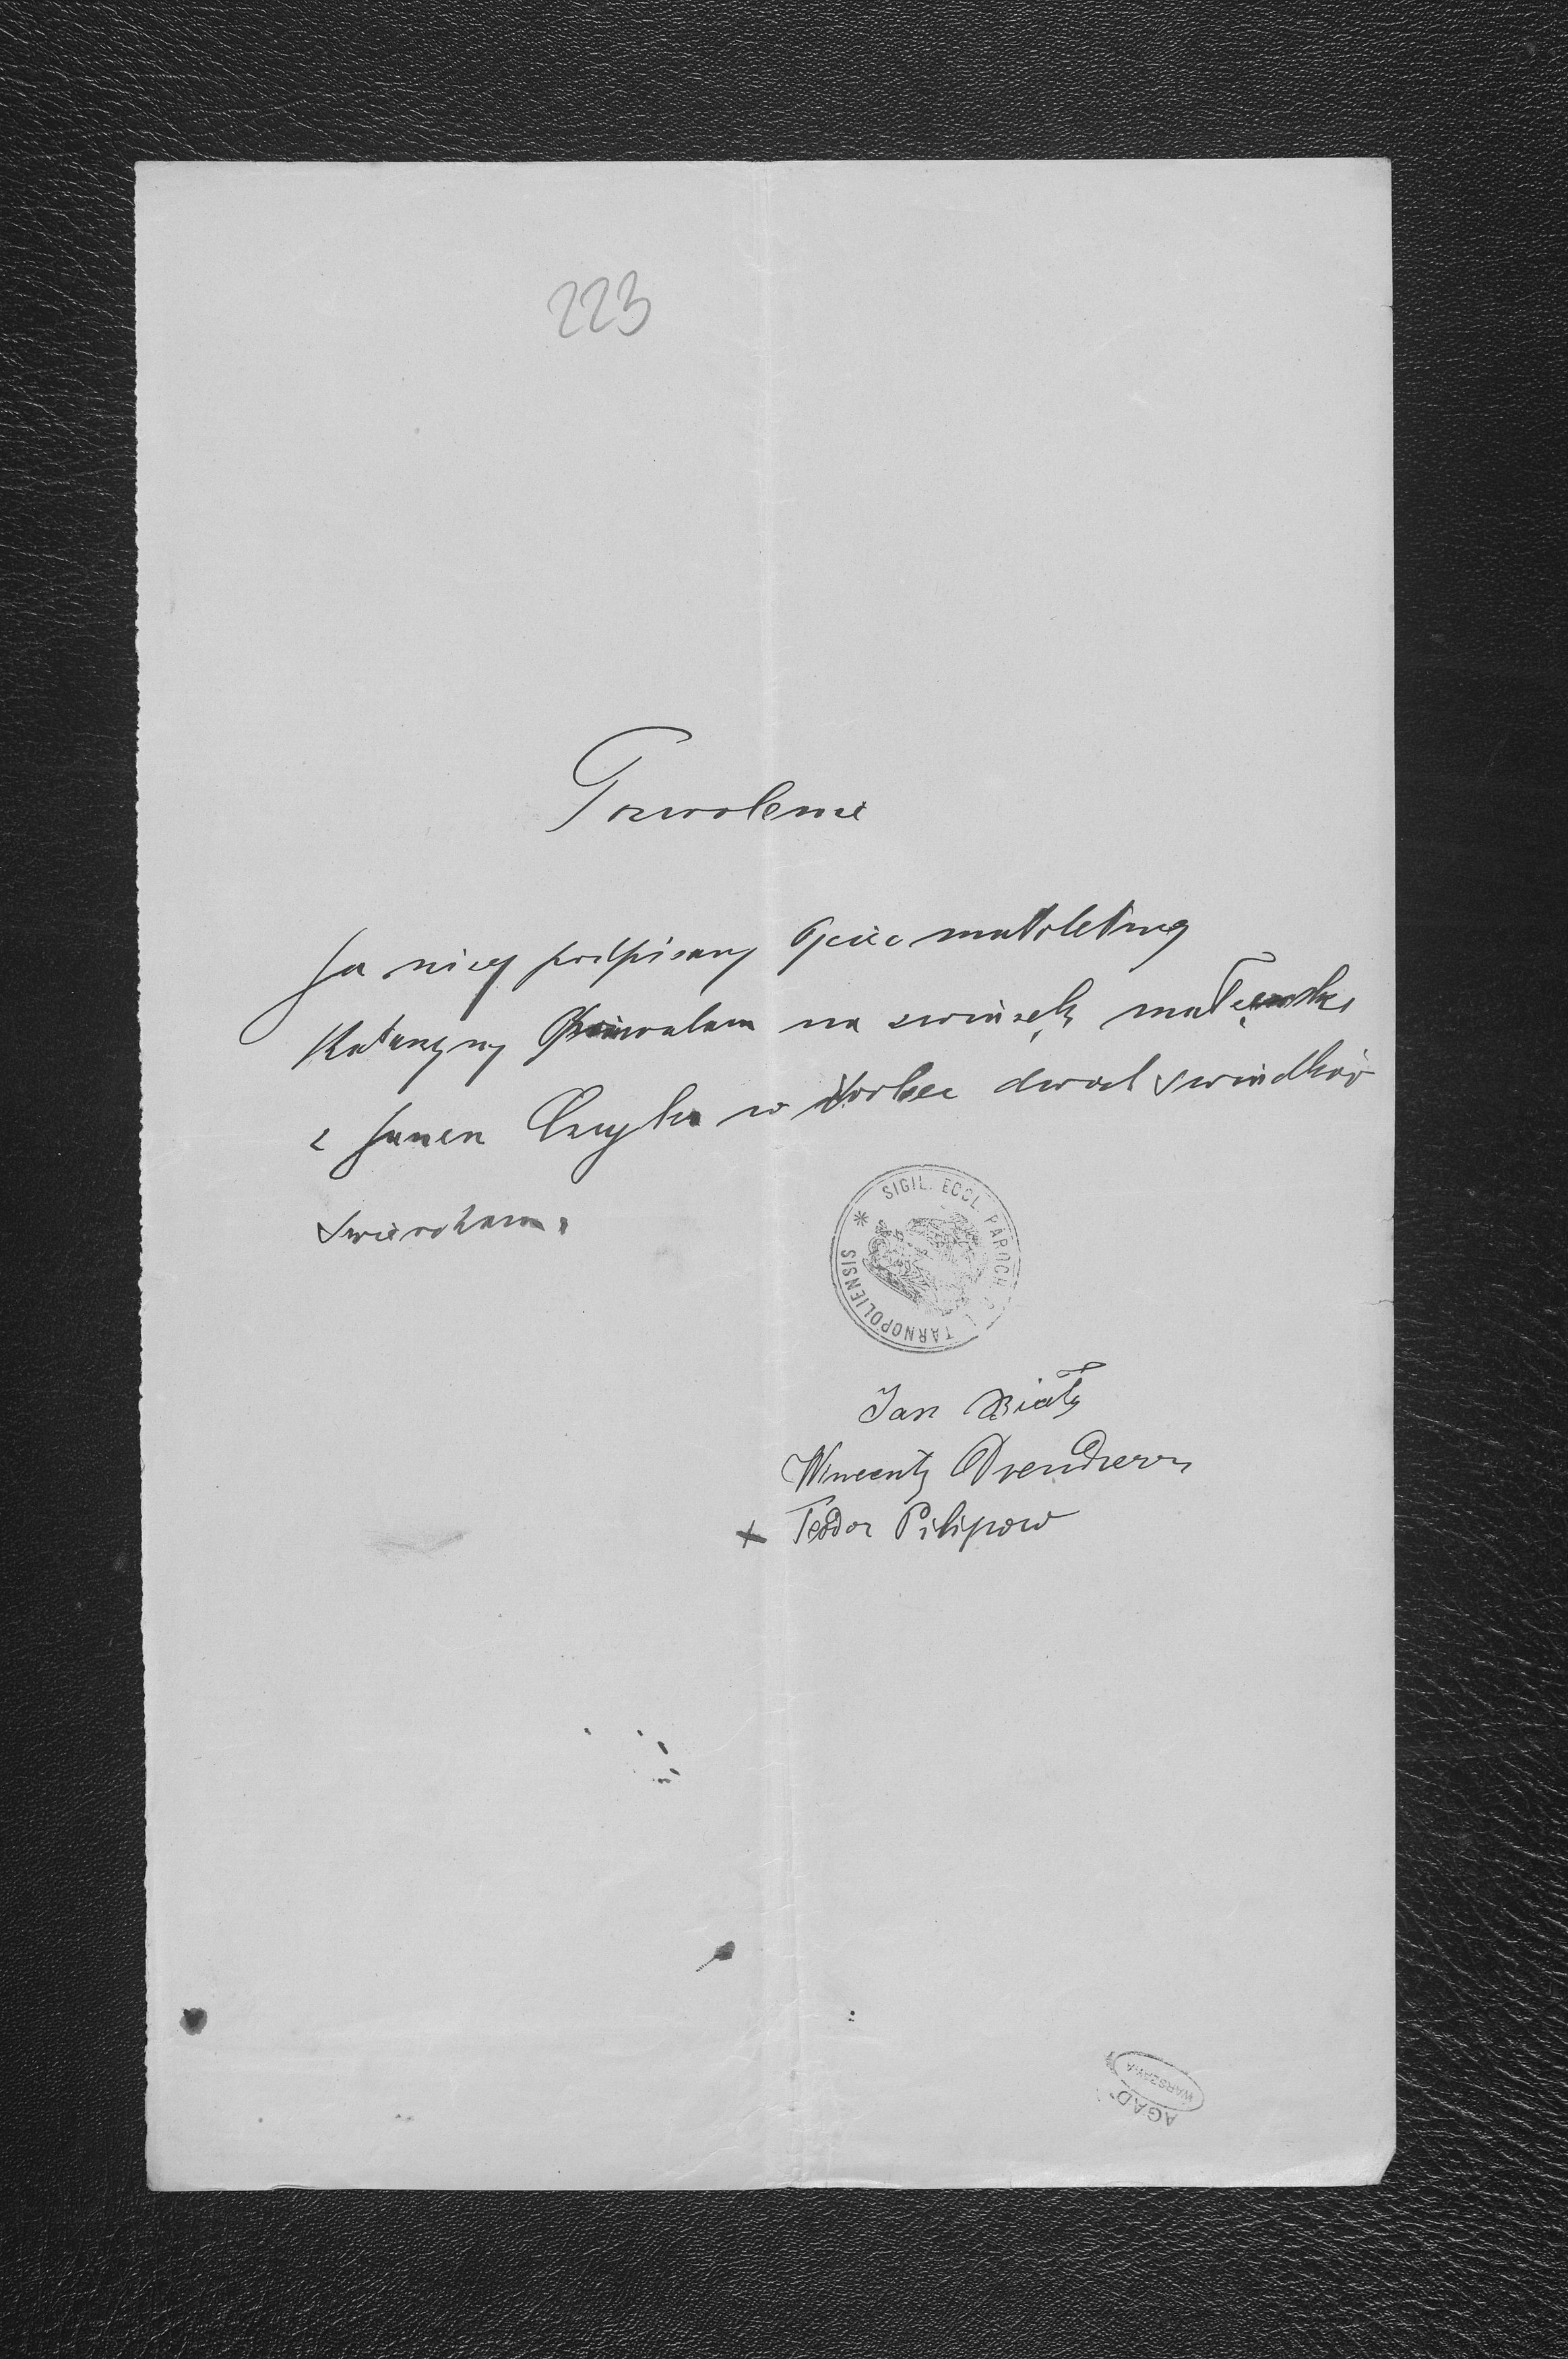 223
Pozwolenie
Ja niżej podpisany Ojciec małoletniej
Katarzyny pozwalam na związek małżeński
z Janem w wobec dwóch świadków
SIGIL. ECCL. PAROCH. TARNOPOLIENSIS
Jan Biały
Wincenty
+ Teodor Pilipow
AGAD
WARSZAWA